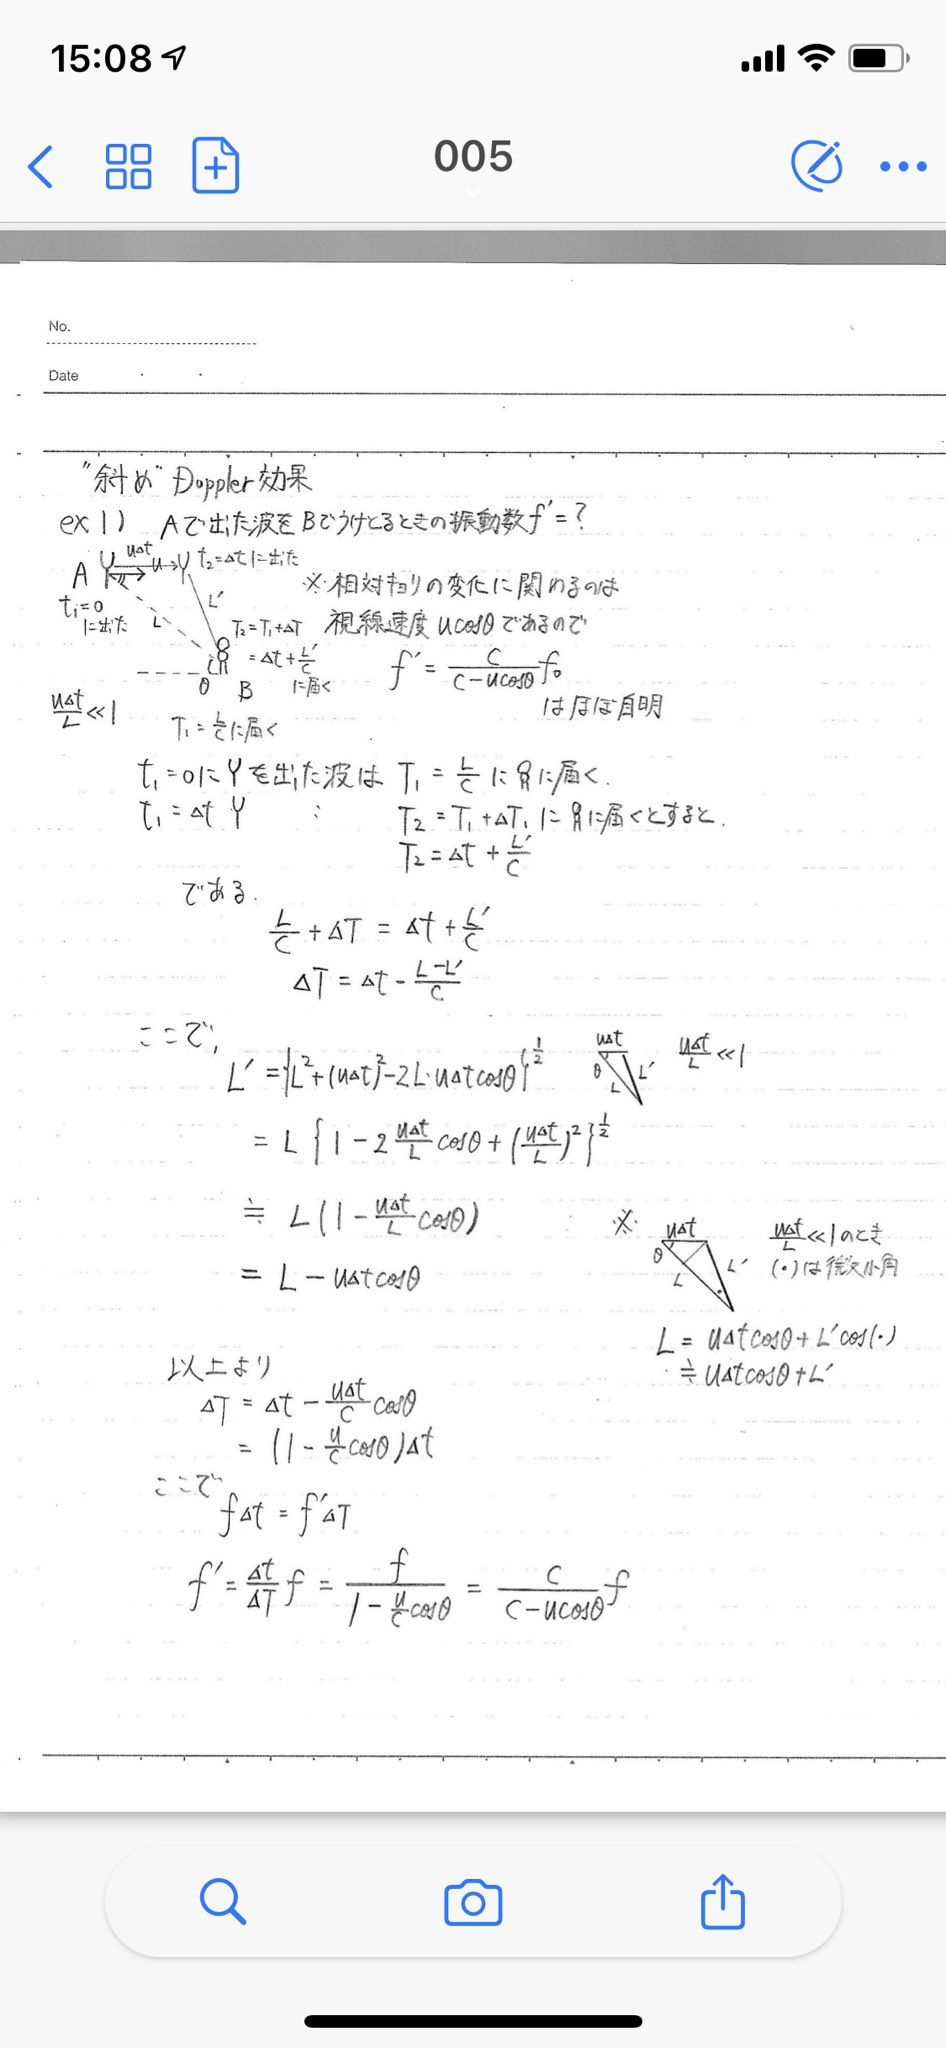 15:08
005
No.
Date
"斜め" Doppler効果
ex 1) Aで出た波をBでうけとるときの振動数f'=?
A uΔt u t₂=Δtに出た
t₁=0
に出た
L L'
T₂=T₁+ΔT
=Δt+L'/C
に届く
θ B
※相対キョリの変化に関わるのは
視線速度 ucosθであるので
f' = C/(C-ucosθ) f₀
はほぼ自明
uΔt/L ≪1
T₁=L/Cに届く
t₁=0に Yを出た波は T₁=L/C に に届く.
t₁=Δt Y : T₂=T₁+ΔT₁ に に届くとすると.
T₂=Δt+L'/C
である.
L/C+ΔT = Δt+L'/C
ΔT = Δt - (L-L')/C
ここで,
L' = {L²+(uΔt)²-2L·uΔtcosθ}^(1/2) uΔt θ L L' uΔt/L ≪1
= L{1-2 uΔt/L cosθ+(uΔt/L)²}^(1/2)
≒ L(1-uΔt/L cosθ)
= L-uΔtcosθ
※ uΔt θ L L'
uΔt/L ≪1のとき
(・)は微小角
L = uΔtcosθ+L'cos(・)
≒ uΔtcosθ+L'
以上より
ΔT = Δt - uΔt/C cosθ
= (1-u/C cosθ)Δt
ここで
fΔt = f'ΔT
f' = Δt/ΔT f = f/(1-u/C cosθ) = C/(C-ucosθ) f